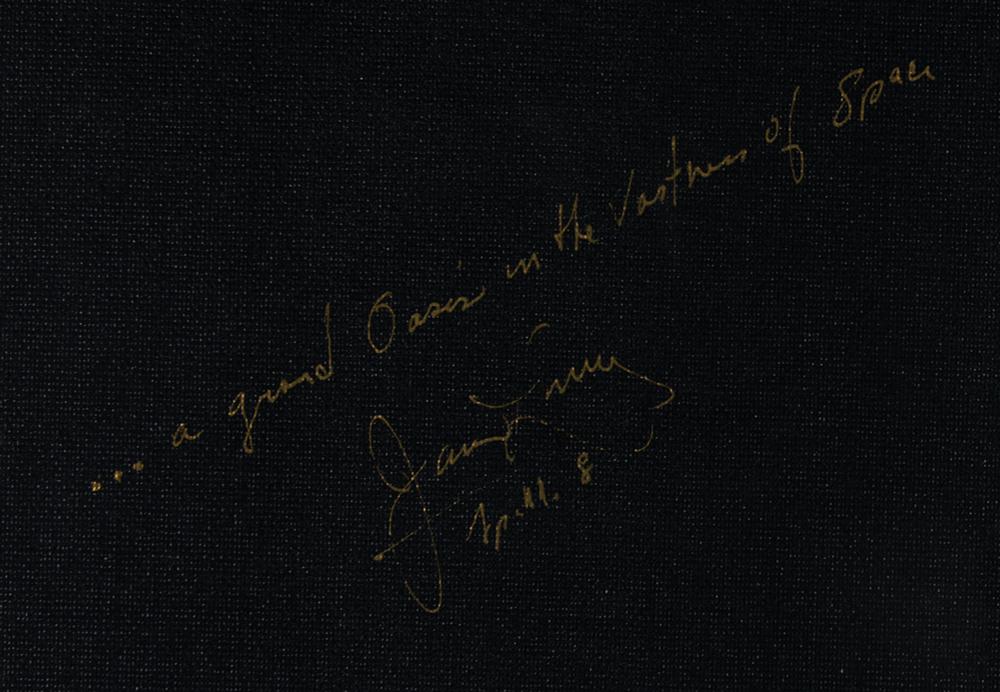 ... a grand Oasis in the Vastness of Space
James Lovell
Apollo 8